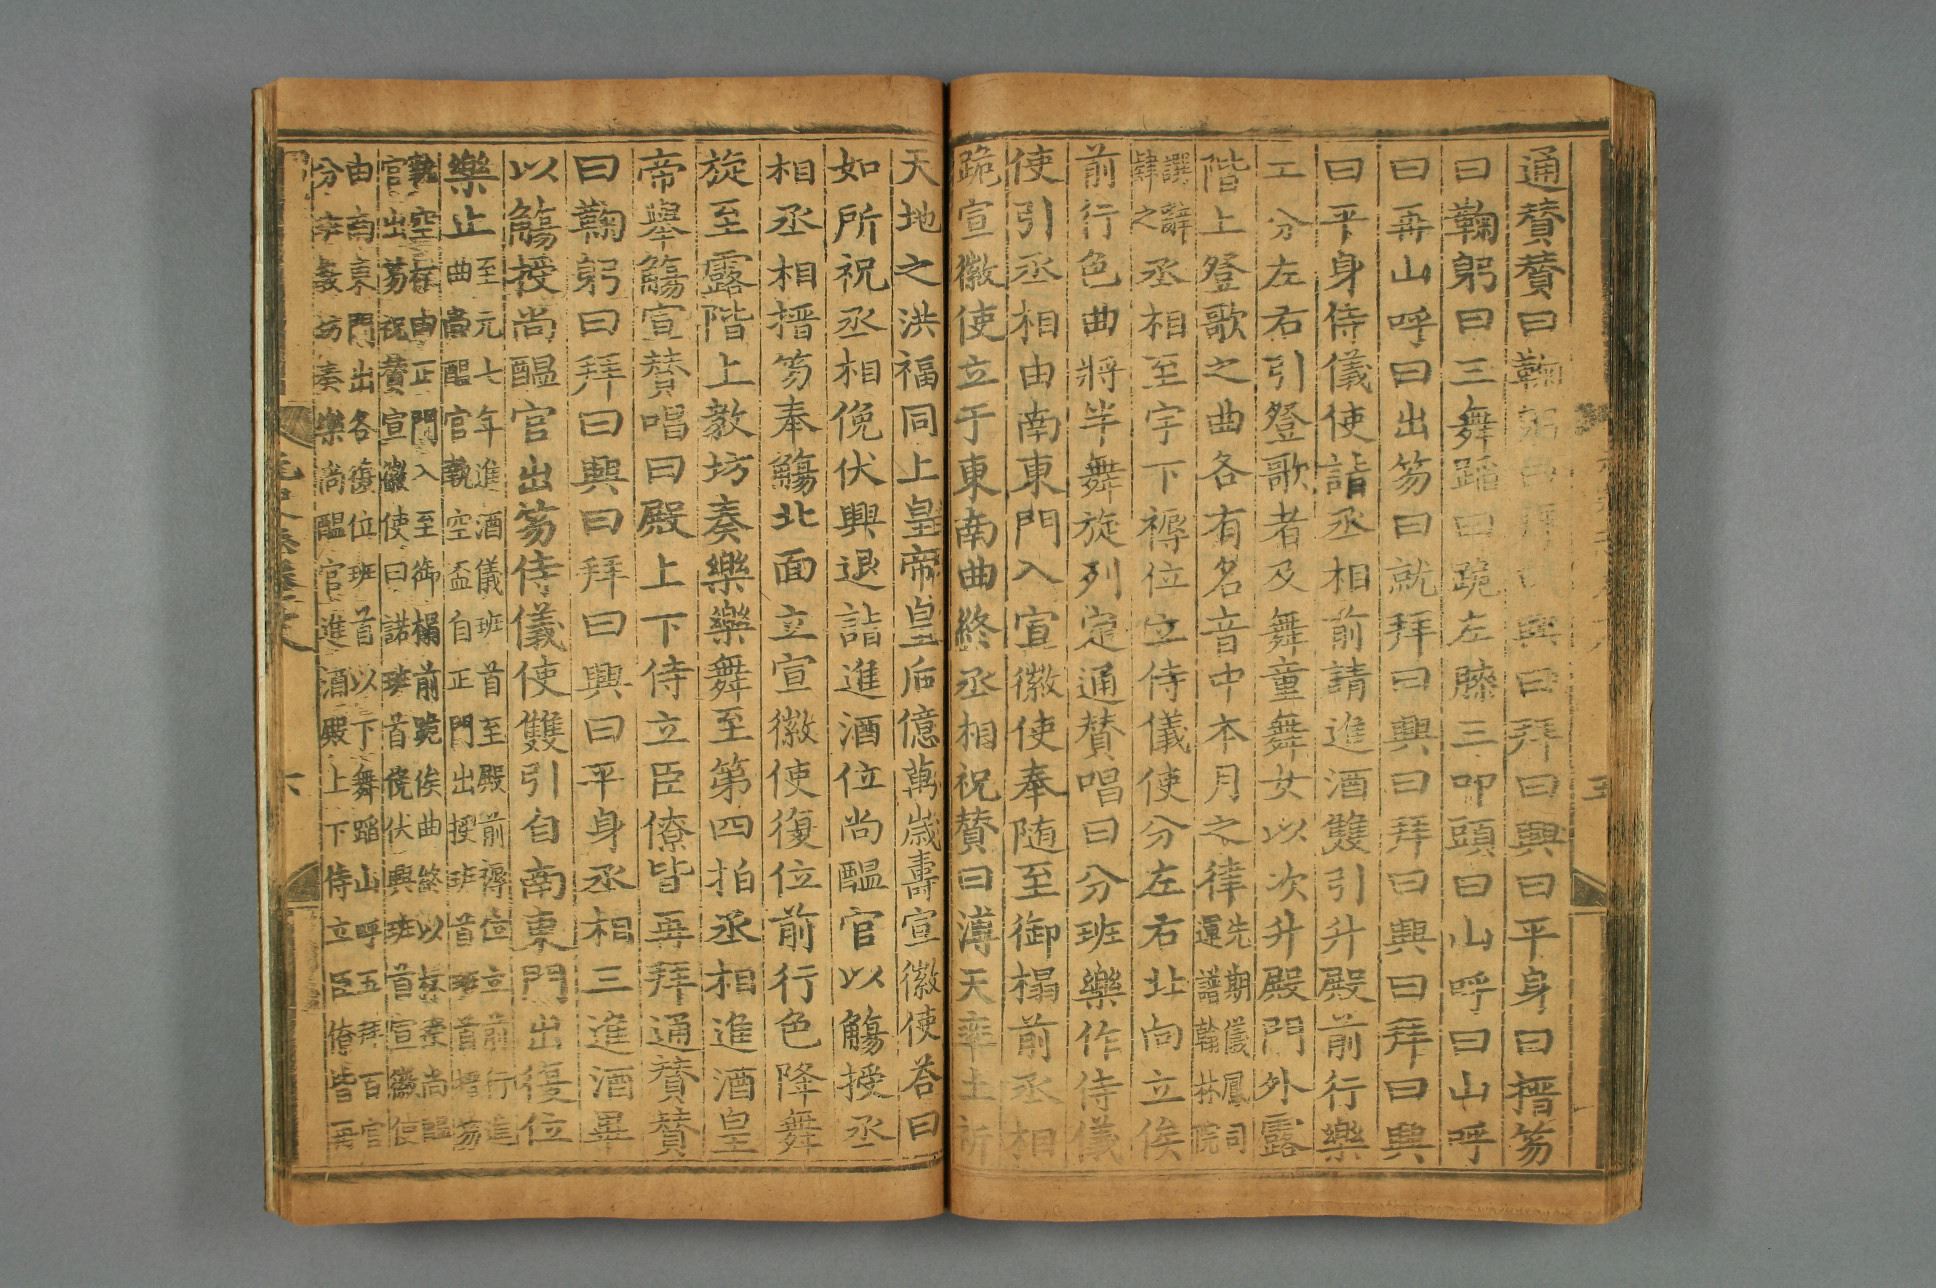 通贊贊曰鞠躬曰拜曰興曰拜曰興曰平身曰搢笏
曰鞠躬曰三舞蹈曰跪左膝三叩頭曰山呼曰山呼
曰再山呼曰出笏曰就拜曰興曰拜曰興曰拜曰興
曰平身侍儀使詣丞相前請進酒雙引升殿前行樂
工分左右引登歌者及舞童舞女以次升殿門外露
階上登歌之曲各有名音中本月之律先期儀鳳司
運譜翰林院
譔辭
肄之丞相至宇下褥位立侍儀使分左右北向立俟
前行色曲將半舞旋列定通贊唱曰分班樂作侍儀
使引丞相由南東門入宣徽使奉随至御榻前丞相
跪宣徽使立于東南曲終丞相祝贊曰溥天率土祈
天地之洪福同上皇帝皇后億萬歲壽宣徽使荅曰
如所祝丞相俛伏興退詣進酒位尚醞官以觴授丞
相丞相搢笏奉觴北面立宣徽使復位前行色降舞
旋至露階上教坊奏樂樂舞至第四拍丞相進酒皇
帝舉觴宣贊唱曰殿上下侍立臣僚皆再拜通贊贊
曰鞠躬曰拜曰興曰拜曰興曰平身丞相三進酒畢
以觴授尚醞官出笏侍儀使雙引自南東門出復位
樂止至元七年進酒儀班首至殿前褥位立前行進
曲尚醞官執空盃自正門出授班首班首搢笏
執空盃由正門入至御榻前跪俟曲終以盃授尚醞
官出笏祝贊宣徽使曰諾班首俛伏興班首宣徽使
由南東門出各復位班首以下舞蹈山呼五拜百官
分班教坊奏樂尚醞官進酒殿上下侍立臣僚皆再
元史卷六十七
六
五